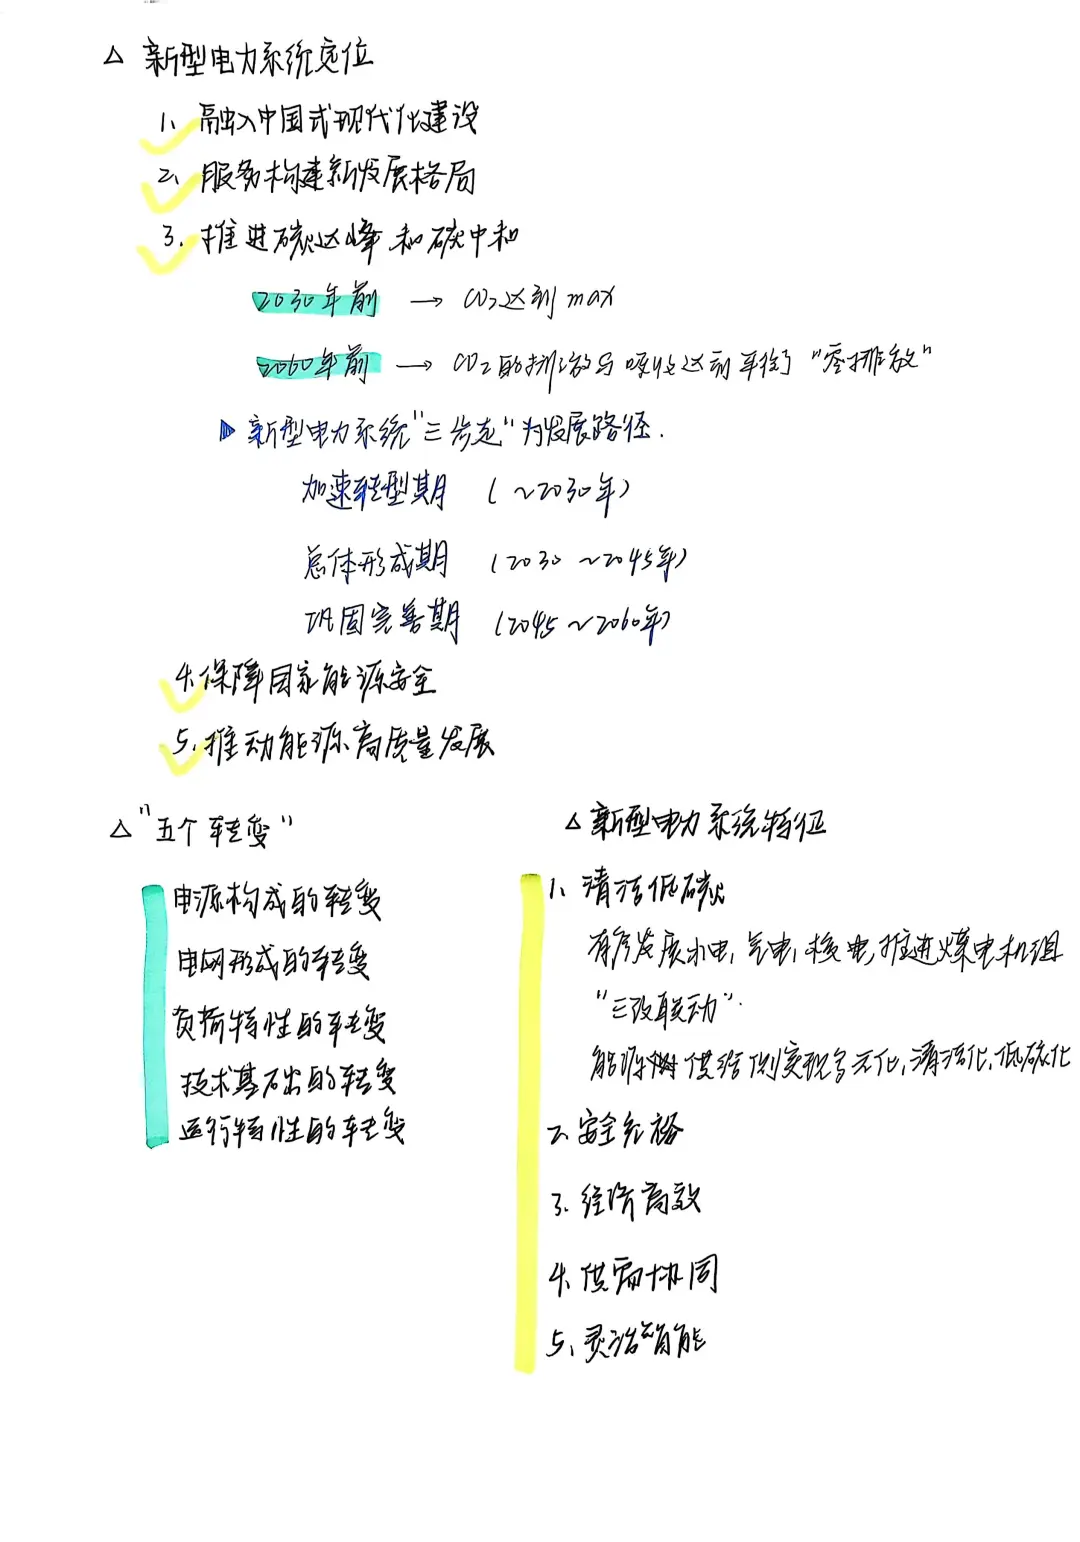 △ 新型电力系统定位
1、融入中国式现代化建设
2、服务构建新发展格局
3、推进碳达峰和碳中和
2030年前 → CO2达到max
2060年前 → CO2的排放与吸收达到平衡 "零排放"
▷ 新型电力系统"三步走"为发展路径.
加速转型期 (~2030年)
总体形成期 (2030 ~2045年)
巩固完善期 (2045 ~2060年)
4、保障国家能源安全
5、推动能源高质量发展
△ "五个转变"
电源构成的转变
电网形成的转变
负荷特性的转变
技术基础的转变
运行特性的转变
△ 新型电力系统特征
1、清洁低碳
有序发展水电,气电,核电,推进煤电机组
"三改联动".
能源供给侧实现多元化,清洁化,低碳化
2、安全充裕
3、经济高效
4、供需协同
5、灵活智能